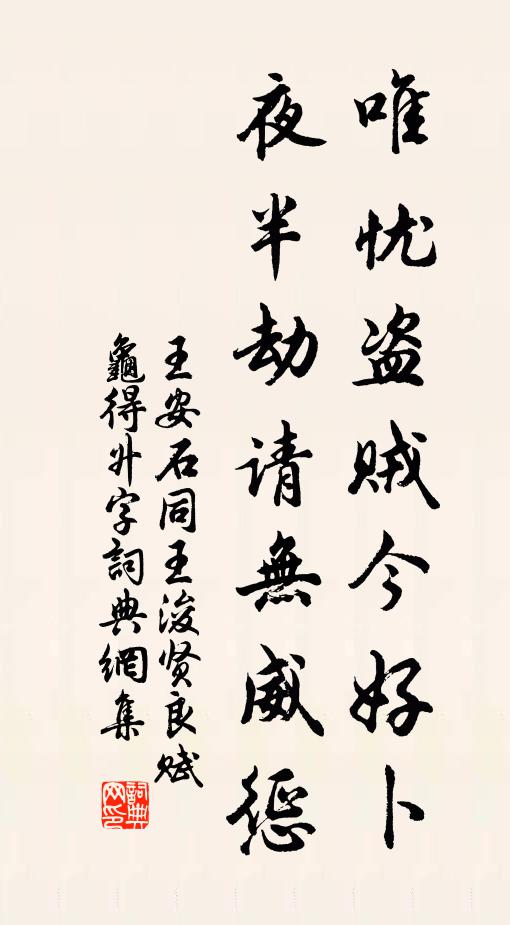 唯忧盗贼今好卜
夜半劫请無威惩
王安石同王浚贤良赋
龜得升字詞典網集
詞典网印